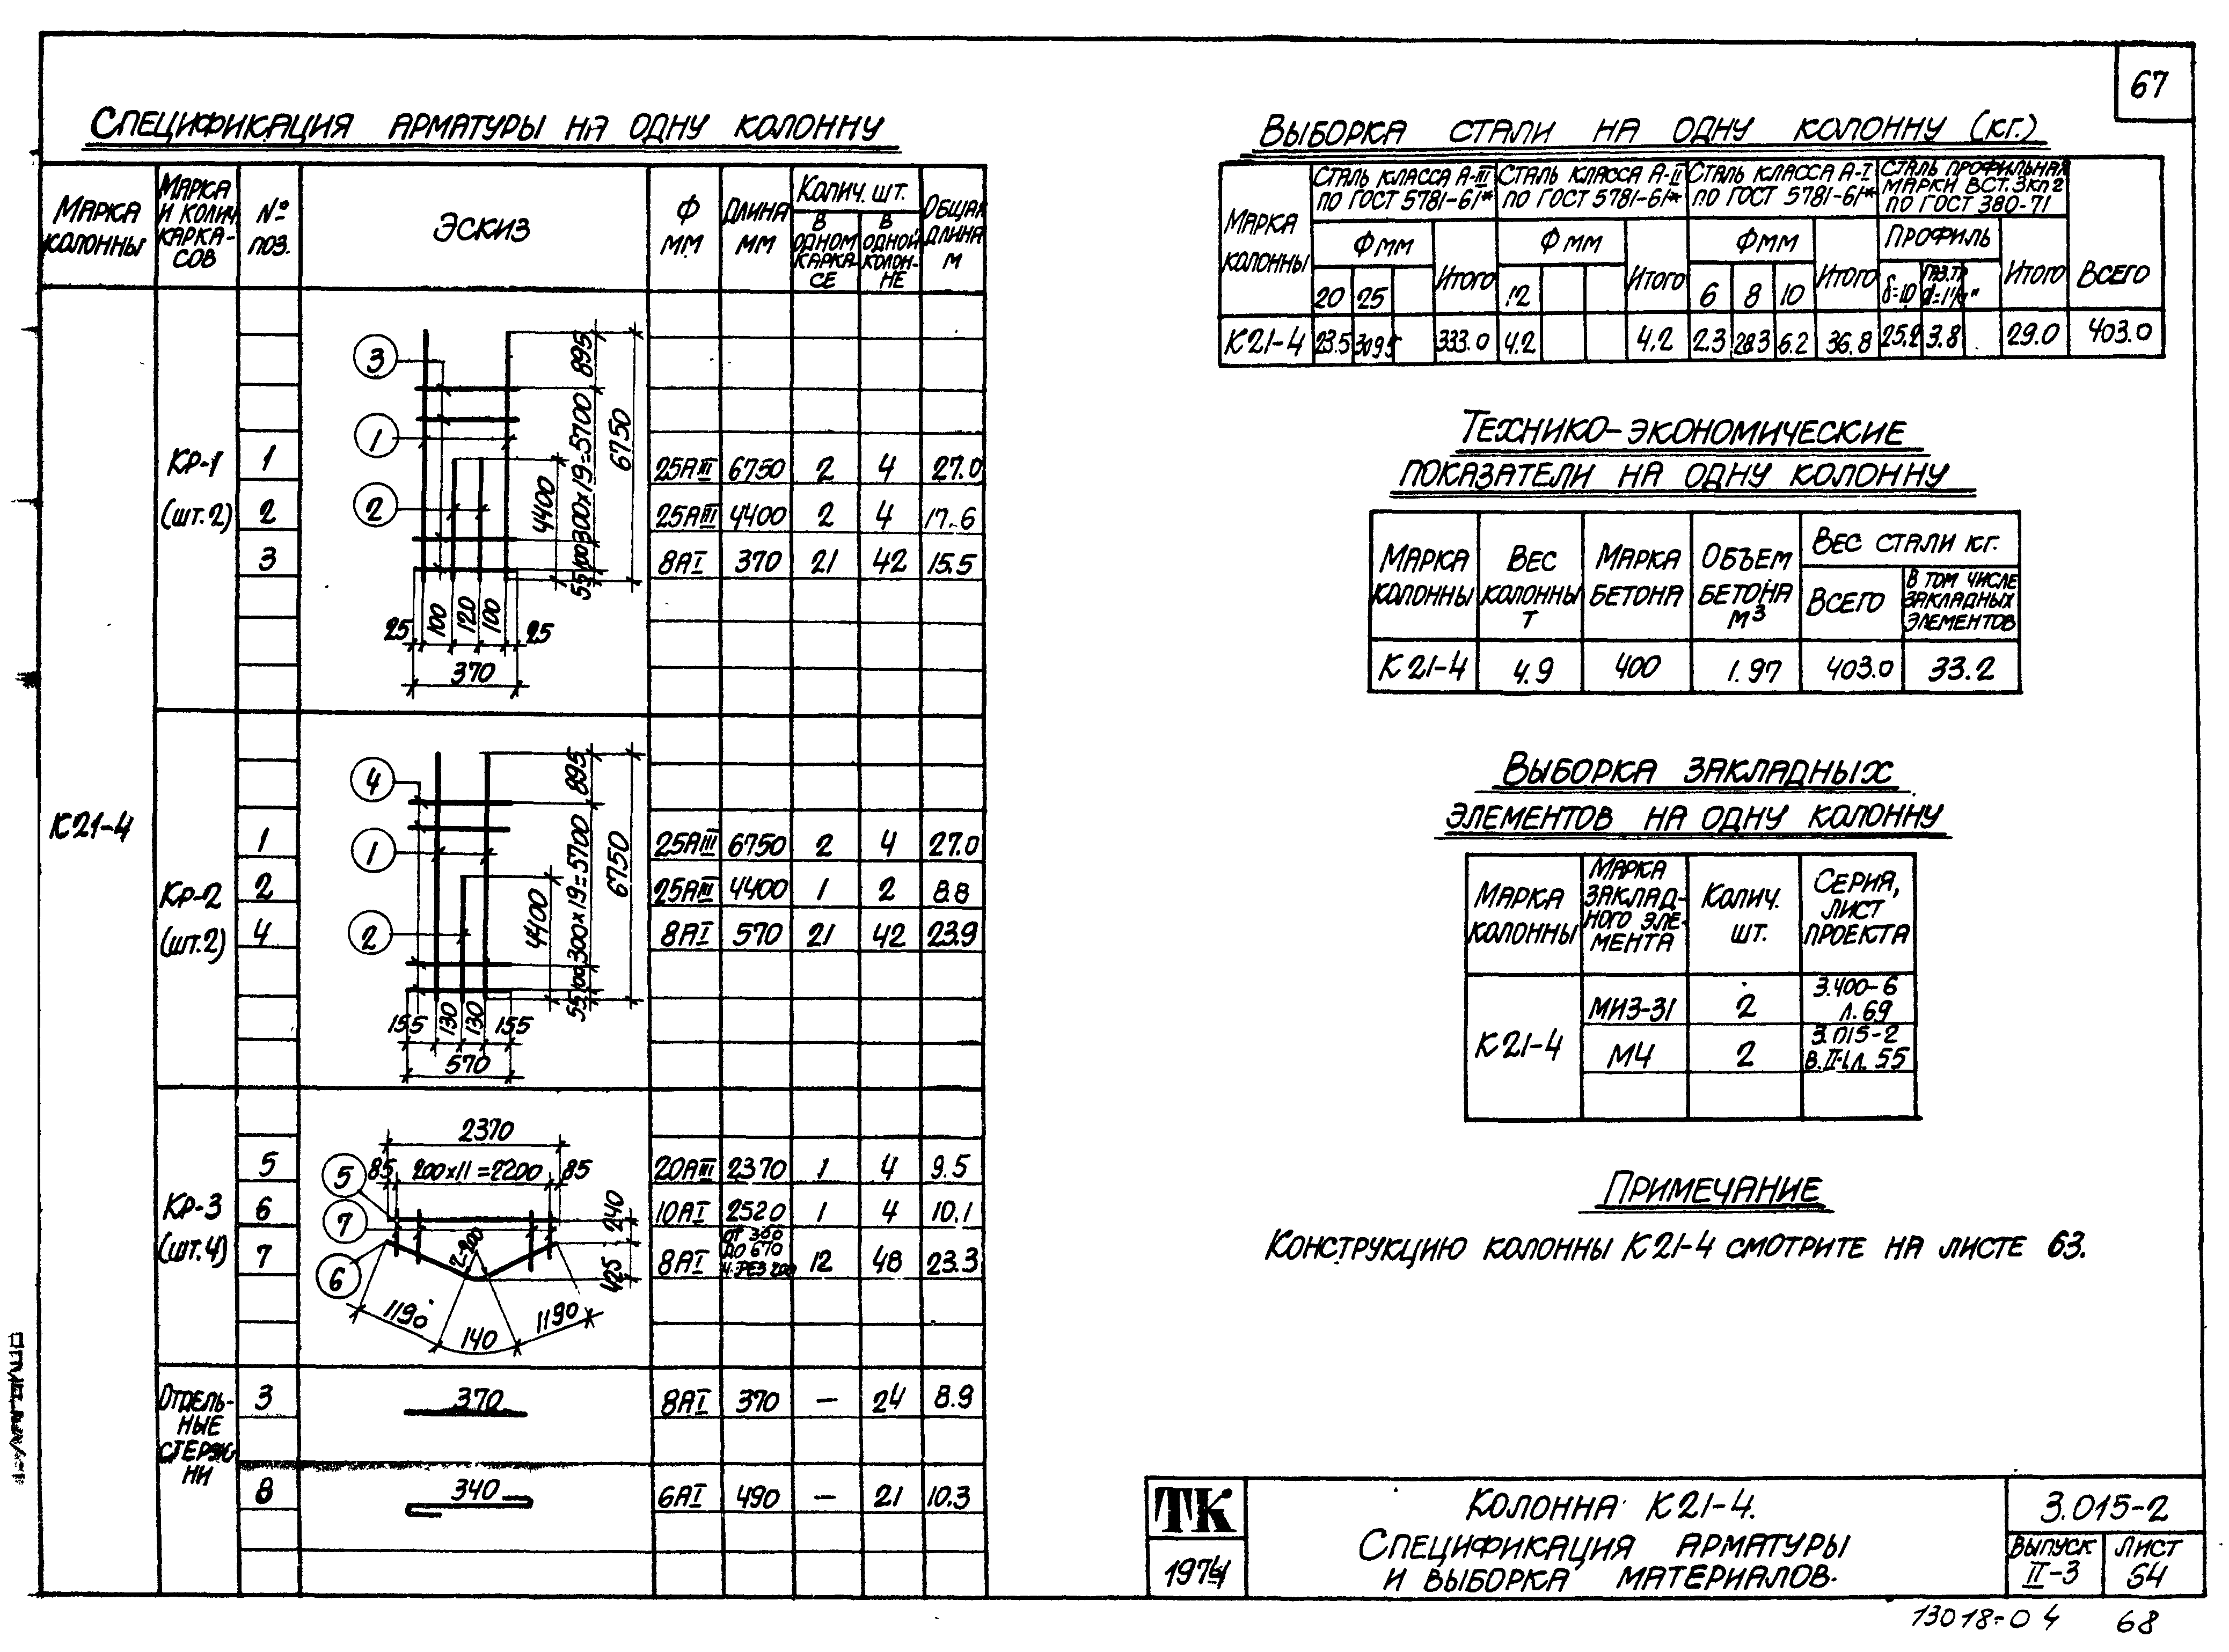 67
Спецификация арматуры на одну колонну
Марка колонны
Марка и колич. каркасов
№ поз.
Эскиз
Ф мм
Длина мм
Колич. шт.
В одном каркасе
В одной колонне
Общая длина м
К21-4
КР-1 (шт.2)
3
1
2
895
300х19=5700
6750
4400
100
55
25 100 120 100 25
370
1 25АIII 6750 2 4 27.0
2 25АIII 4400 2 4 17.6
3 8АI 370 21 42 15.5
КР-2 (шт.2)
4
1
2
895
300х19=5700
6750
4400
100
55
155 130 130 155
570
1 25АIII 6750 2 4 27.0
2 25АIII 4400 1 2 8.8
4 8АI 570 21 42 23.9
КР-3 (шт.4)
2370
85 200х11=2200 85
5
7
6
240
425
1190 140 1190
5 20АIII 2370 1 4 9.5
6 10АI 2520 1 4 10.1
7 8АI до 670 12 48 23.3
Отдельные стержни
3 370 8АI 370 — 24 8.9
8 340 6АI 490 — 21 10.3
Выборка стали на одну колонну (кг.)
Марка колонны
Сталь класса А-III по ГОСТ 5781-61*
Сталь класса А-II по ГОСТ 5781-61*
Сталь класса А-I по ГОСТ 5781-61*
Сталь профильная марки ВСт.3кп2 по ГОСТ 380-71
Всего
Фмм Итого Фмм Итого Фмм Итого Профиль Итого
20 25 12 6 8 10 δ=10
К21-4 23.5 309.5 333.0 4.2 4.2 2.3 28.3 6.2 36.8 25.2 3.8 29.0 403.0
Технико-экономические
показатели на одну колонну
Марка колонны
Вес колонны т
Марка бетона
Объем бетона м³
Вес стали кг.
Всего
В том числе закладных элементов
К21-4 4.9 400 1.97 403.0 33.2
Выборка закладных
элементов на одну колонну
Марка колонны
Марка закладного элемента
Колич. шт.
Серия, лист проекта
К21-4
МИ3-31 2 3.400-6 л.69
М4 2 3.015-2 в.II-1 л.55
Примечание
Конструкцию колонны К21-4 смотрите на листе 63.
ТК
1974
Колонна К21-4.
Спецификация арматуры
и выборка материалов.
3.015-2
Выпуск II-3
Лист 54
13018-04 68